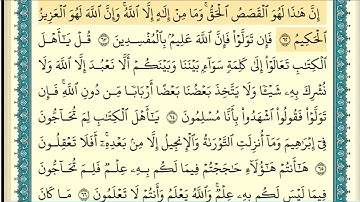 إِنَّ هَٰذَا لَهُوَ ٱلْقَصَصُ ٱلْحَقُّ ۚ وَمَا مِنْ إِلَٰهٍ إِلَّا ٱللَّهُ ۚ وَإِنَّ ٱللَّهَ لَهُوَ ٱلْعَزِيزُ
ٱلْحَكِيمُ ٦٢ فَإِن تَوَلَّوْا۟ فَإِنَّ ٱللَّهَ عَلِيمٌۢ بِٱلْمُفْسِدِينَ ٦٣ قُلْ يَٰٓأَهْلَ
ٱلْكِتَٰبِ تَعَالَوْا۟ إِلَىٰ كَلِمَةٍ سَوَآءٍۭ بَيْنَنَا وَبَيْنَكُمْ أَلَّا نَعْبُدَ إِلَّا ٱللَّهَ وَلَا
نُشْرِكَ بِهِۦ شَيْـًٔا وَلَا يَتَّخِذَ بَعْضُنَا بَعْضًا أَرْبَابًا مِّن دُونِ ٱللَّهِ ۚ فَإِن
تَوَلَّوْا۟ فَقُولُوا۟ ٱشْهَدُوا۟ بِأَنَّا مُسْلِمُونَ ٦٤ يَٰٓأَهْلَ ٱلْكِتَٰبِ لِمَ تُحَآجُّونَ
فِىٓ إِبْرَٰهِيمَ وَمَآ أُنزِلَتِ ٱلتَّوْرَىٰةُ وَٱلْإِنجِيلُ إِلَّا مِنۢ بَعْدِهِۦٓ ۚ أَفَلَا تَعْقِلُونَ
٦٥ هَٰٓأَنتُمْ هَٰٓؤُلَآءِ حَٰجَجْتُمْ فِيمَا لَكُم بِهِۦ عِلْمٌ فَلِمَ تُحَآجُّونَ
فِيمَا لَيْسَ لَكُم بِهِۦ عِلْمٌ ۚ وَٱللَّهُ يَعْلَمُ وَأَنتُمْ لَا تَعْلَمُونَ ٦٦ مَا كَانَ